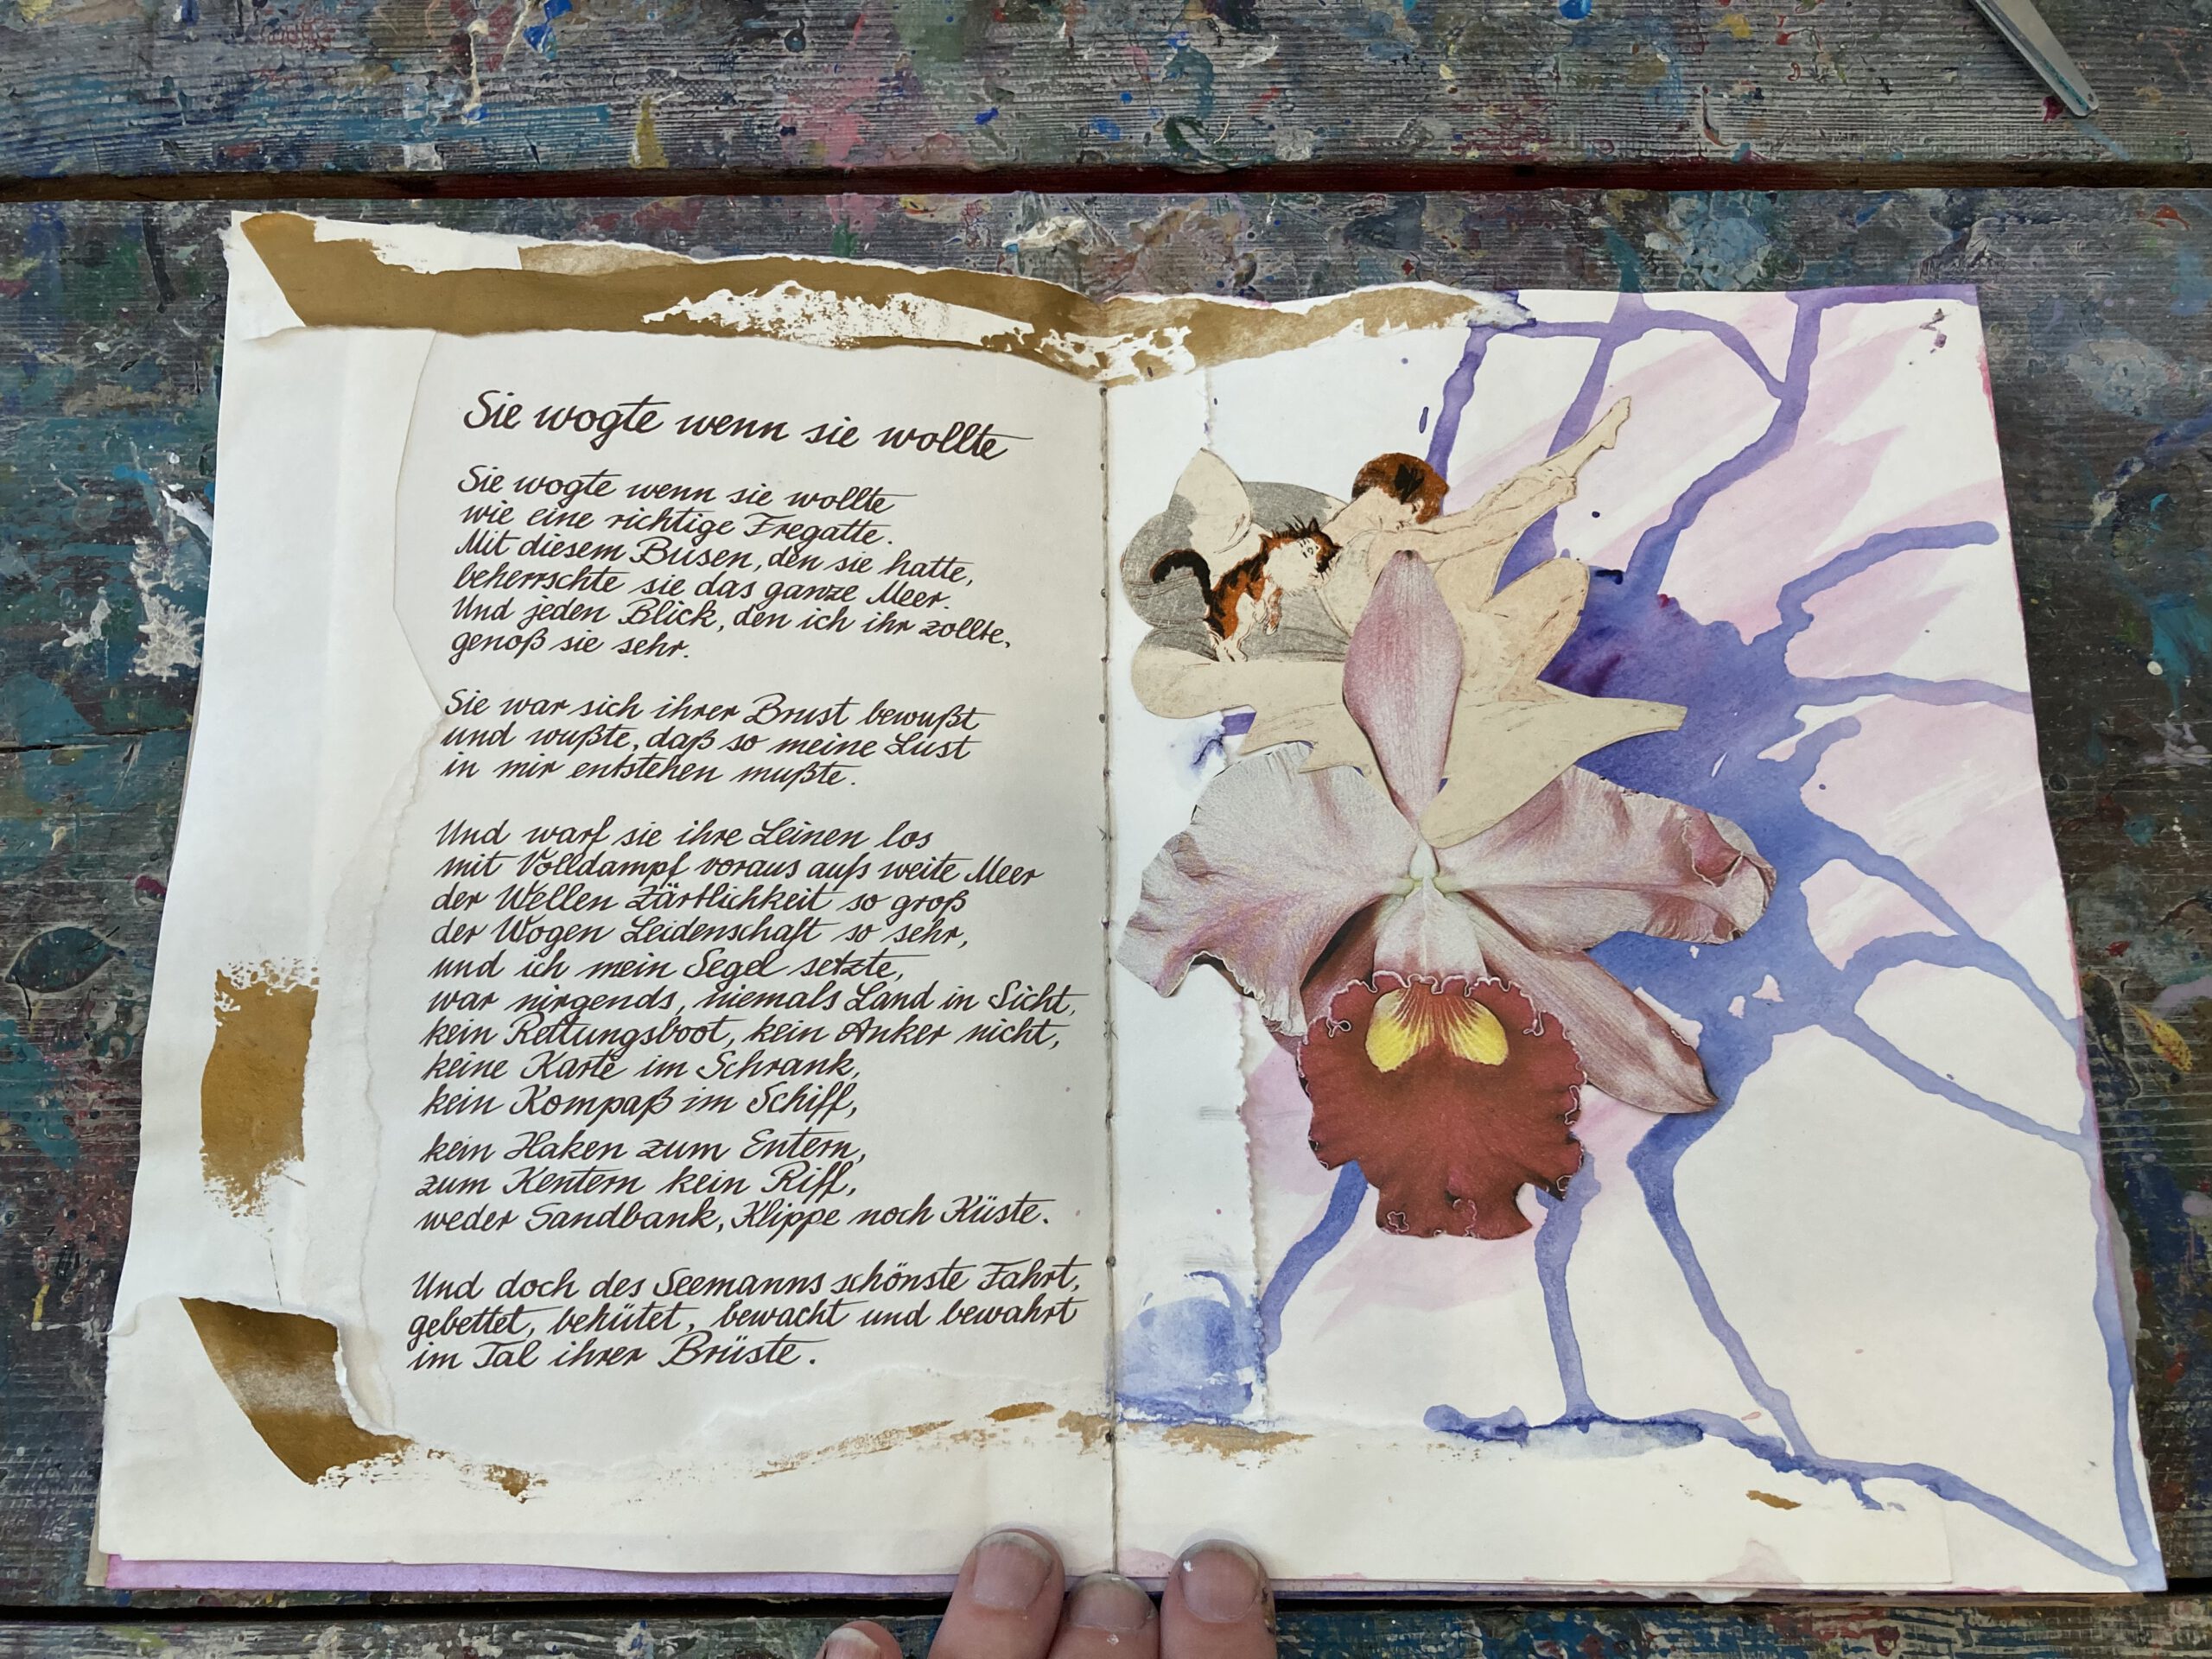 Sie wogte wenn sie wollte
Sie wogte wenn sie wollte
wie eine richtige Fregatte.
Mit diesem Busen, den sie hatte,
beherrschte sie das ganze Meer.
Und jeden Blick, den ich ihr zollte,
genoß sie sehr.
Sie war sich ihrer Brust bewußt
und wußte, daß so meine Lust
in mir entstehen mußte.
Und warf sie ihre Leinen los
mit Volldampf voraus aufs weite Meer
der Wellen Zärtlichkeit so groß
der Wogen Leidenschaft so sehr,
und ich mein Segel setzte,
war nirgends, niemals Land in Sicht,
kein Rettungsboot, kein Anker nicht,
keine Karte im Schrank,
kein Kompaß im Schiff,
kein Haken zum Entern,
zum Kentern kein Riff,
weder Sandbank, Klippe noch Küste.
Und doch des Seemanns schönste Fahrt,
gebettet, behütet, bewacht und bewahrt
im Tal ihrer Brüste.